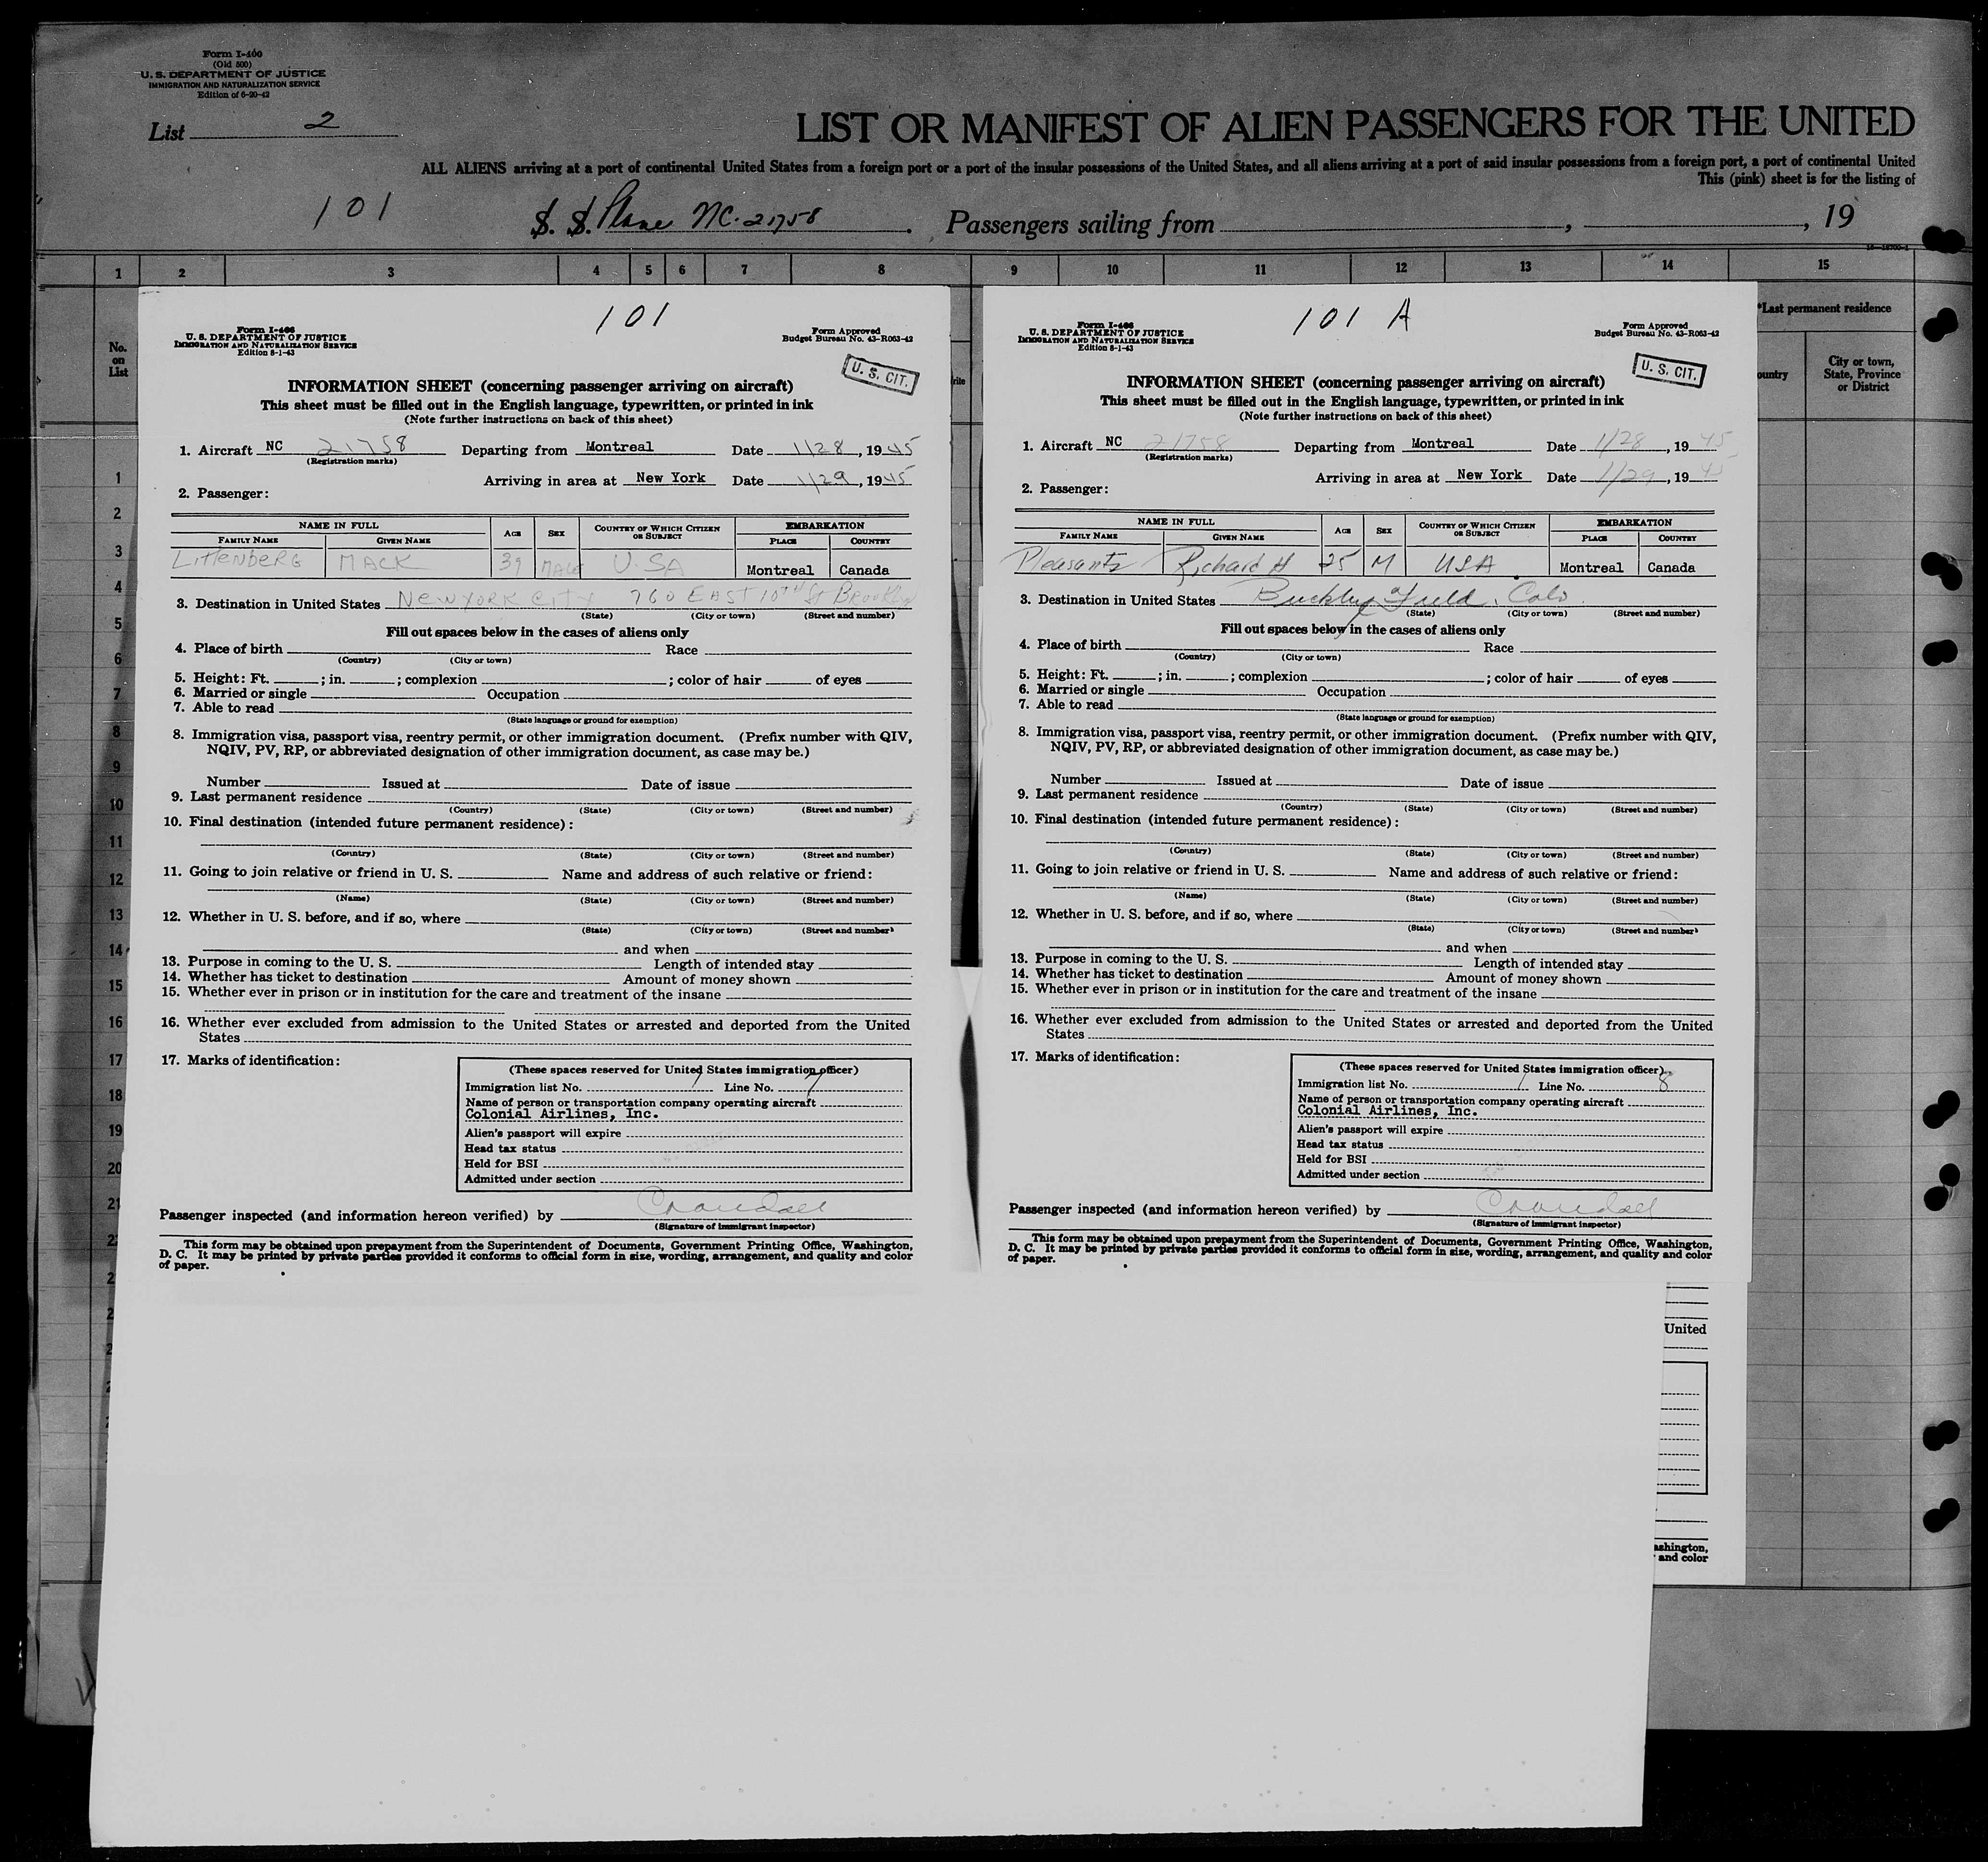 Form I-400
(Old 500)
U. S. DEPARTMENT OF JUSTICE
IMMIGRATION AND NATURALIZATION SERVICE
Edition of 6-20-42
List 2
LIST OR MANIFEST OF ALIEN PASSENGERS FOR THE UNITED
ALL ALIENS arriving at a port of continental United States from a foreign port or a port of the insular possessions of the United States, and all aliens arriving at a port of said insular possessions from a foreign port, a port of continental United
This (pink) sheet is for the listing of
101 S. S. Plane NC-21758 . Passengers sailing from , , 19
1 2 3 4 5 6 7 8 9 10 11 12 13 14 15
No. on List
*Last permanent residence
ountry
City or town, State, Province or District
1
2
3
4
5
6
7
8
9
10
11
12
13
14
15
16
17
18
19
20
21
101
Form I-466
U. S. DEPARTMENT OF JUSTICE
IMMIGRATION AND NATURALIZATION SERVICE
Edition 8-1-43
Form Approved
Budget Bureau No. 43-R063-42
U. S. CIT.
INFORMATION SHEET (concerning passenger arriving on aircraft)
This sheet must be filled out in the English language, typewritten, or printed in ink
(Note further instructions on back of this sheet)
1. Aircraft NC 21758 Departing from Montreal Date 1/28, 1945
(Registration marks)
Arriving in area at New York Date 1/29, 1945
2. Passenger:
NAME IN FULL AGE SEX COUNTRY OF WHICH CITIZEN OR SUBJECT EMBARKATION
FAMILY NAME GIVEN NAME PLACE COUNTRY
LITTENBERG MACK 39 MALE U.SA Montreal Canada
3. Destination in United States NEW YORK CITY 760 EAST 10TH St Brooklyn
(State) (City or town) (Street and number)
Fill out spaces below in the cases of aliens only
4. Place of birth Race
(Country) (City or town)
5. Height: Ft. ; in. ; complexion ; color of hair of eyes
6. Married or single Occupation
7. Able to read
(State language or ground for exemption)
8. Immigration visa, passport visa, reentry permit, or other immigration document. (Prefix number with QIV,
NQIV, PV, RP, or abbreviated designation of other immigration document, as case may be.)
Number Issued at Date of issue
9. Last permanent residence
(Country) (State) (City or town) (Street and number)
10. Final destination (intended future permanent residence):
(Country) (State) (City or town) (Street and number)
11. Going to join relative or friend in U. S. Name and address of such relative or friend:
(Name) (State) (City or town) (Street and number)
12. Whether in U. S. before, and if so, where
(State) (City or town) (Street and number)
and when
13. Purpose in coming to the U. S. Length of intended stay
14. Whether has ticket to destination Amount of money shown
15. Whether ever in prison or in institution for the care and treatment of the insane
16. Whether ever excluded from admission to the United States or arrested and deported from the United
States
17. Marks of identification:
(These spaces reserved for United States immigration officer)
Immigration list No. 1 Line No. 7
Name of person or transportation company operating aircraft
Colonial Airlines, Inc.
Alien's passport will expire
Head tax status
Held for BSI
Admitted under section
Passenger inspected (and information hereon verified) by Crandall
(Signature of immigrant inspector)
This form may be obtained upon prepayment from the Superintendent of Documents, Government Printing Office, Washington,
D. C. It may be printed by private parties provided it conforms to official form in size, wording, arrangement, and quality and color
of paper.
101 A
Form I-466
U. S. DEPARTMENT OF JUSTICE
IMMIGRATION AND NATURALIZATION SERVICE
Edition 8-1-43
Form Approved
Budget Bureau No. 43-R063-42
U. S. CIT.
INFORMATION SHEET (concerning passenger arriving on aircraft)
This sheet must be filled out in the English language, typewritten, or printed in ink
(Note further instructions on back of this sheet)
1. Aircraft NC 21758 Departing from Montreal Date 1/28, 1945
(Registration marks)
Arriving in area at New York Date 1/29, 1945
2. Passenger:
NAME IN FULL AGE SEX COUNTRY OF WHICH CITIZEN OR SUBJECT EMBARKATION
FAMILY NAME GIVEN NAME PLACE COUNTRY
Pleasants Richard H 25 M USA Montreal Canada
3. Destination in United States Buckley Field, Colo
(State) (City or town) (Street and number)
Fill out spaces below in the cases of aliens only
4. Place of birth Race
(Country) (City or town)
5. Height: Ft. ; in. ; complexion ; color of hair of eyes
6. Married or single Occupation
7. Able to read
(State language or ground for exemption)
8. Immigration visa, passport visa, reentry permit, or other immigration document. (Prefix number with QIV,
NQIV, PV, RP, or abbreviated designation of other immigration document, as case may be.)
Number Issued at Date of issue
9. Last permanent residence
(Country) (State) (City or town) (Street and number)
10. Final destination (intended future permanent residence):
(Country) (State) (City or town) (Street and number)
11. Going to join relative or friend in U. S. Name and address of such relative or friend:
(Name) (State) (City or town) (Street and number)
12. Whether in U. S. before, and if so, where
(State) (City or town) (Street and number)
and when
13. Purpose in coming to the U. S. Length of intended stay
14. Whether has ticket to destination Amount of money shown
15. Whether ever in prison or in institution for the care and treatment of the insane
16. Whether ever excluded from admission to the United States or arrested and deported from the United
States
17. Marks of identification:
(These spaces reserved for United States immigration officer)
Immigration list No. 1 Line No. 8
Name of person or transportation company operating aircraft
Colonial Airlines, Inc.
Alien's passport will expire
Head tax status
Held for BSI
Admitted under section
Passenger inspected (and information hereon verified) by Crandall
(Signature of immigrant inspector)
This form may be obtained upon prepayment from the Superintendent of Documents, Government Printing Office, Washington,
D. C. It may be printed by private parties provided it conforms to official form in size, wording, arrangement, and quality and color
of paper.
United
ashington,
and color